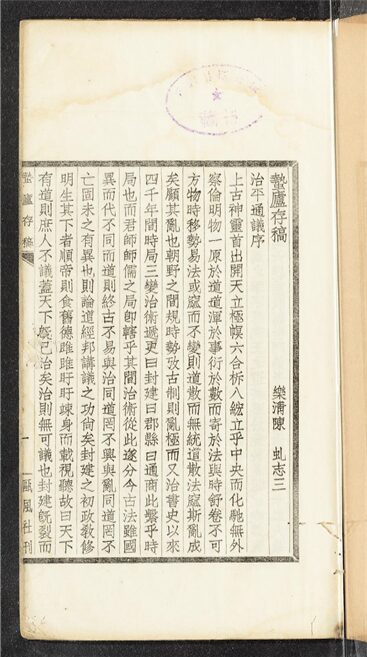 蟄廬存稿
樂清陳　虬志三
治平通議序
上古神靈首出開天立極幎六合柝八紘立乎中央而化馳無外
察倫明物一原於道道渾於事衍於數而寄於法與時舒卷不可
方物時移勢易法或窳而不變則道散而無統道散法窳斯亂成
矣顧其亂也朝野之間規時勢攷古制則亂極而又治書史以來
四千年間時局三變治術遞更曰封建曰郡縣曰通商此繫乎時
局也而君師師儒之局卽轄乎其間治術從此遂分今古法雖國
異而代不同而道則終古不易與治同道罔不興與亂同道罔不
亡固未之有異也則論道經邦講議之功尙矣封建之初政教修
明生其下者順帝則食舊德睢睢盱盱竦身而載視聽故曰天下
有道則庶人不議蓋天下旣已治矣治則無可議也封建旣裂而
蟄廬存稿
一
甌風社刊